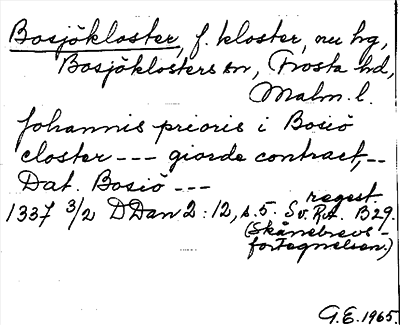 Bosjökloster, f. kloster, nu hg,
Bosjöklosters sn, Frosta hd,
Malm. l.
Johannis prioris i Bosiö
closter --- giorde contract, --
Dat. Bosiö ---
1337 3/2 DDan 2:12, s. 5. Sv. RA. regest. B 29.
(Skånebrevs-
förtegnelsen.)
G.E. 1965.